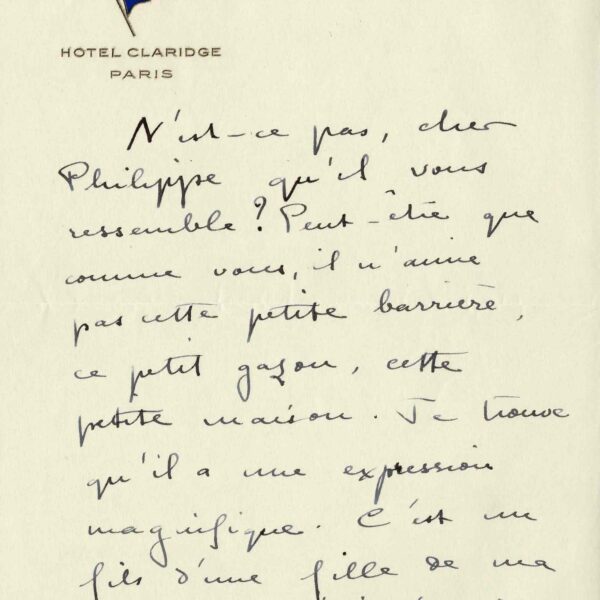 HOTEL CLARIDGE
PARIS
N'est-ce pas, cher
Philippe qu'il vous
ressemble? Peut-être que
comme vous, il n'aime
pas cette petite barrière,
ce petit gazon, cette
petite maison. Je trouve
qu'il a une expression
magnifique. C'est un
fils d'une fille de ma